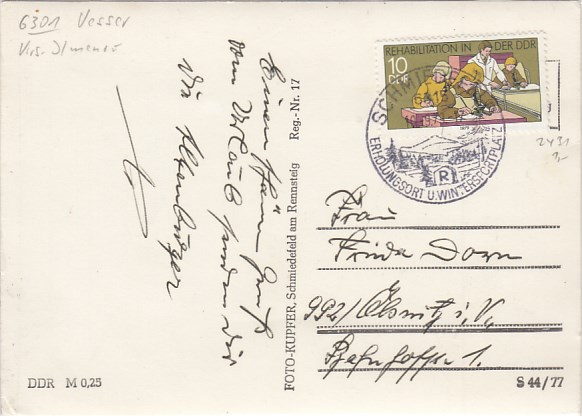 6301 Vesser
Krs. Ilmenau
Einen schönen Gruß
vom Urlaub senden Dir
die Altenburger
FOTO-KUPFER, Schmiedefeld am Rennsteig Reg.-Nr. 17
REHABILITATION IN DER DDR
10
DDR
SCHMIE
ERHOLUNGSORT U. WINTERSPORTPLATZ
R
2431
Frau
Frieda Dorn
992/Oelsnitz i. V.
Bahnhofstr. 1.
DDR M 0,25
S 44/77